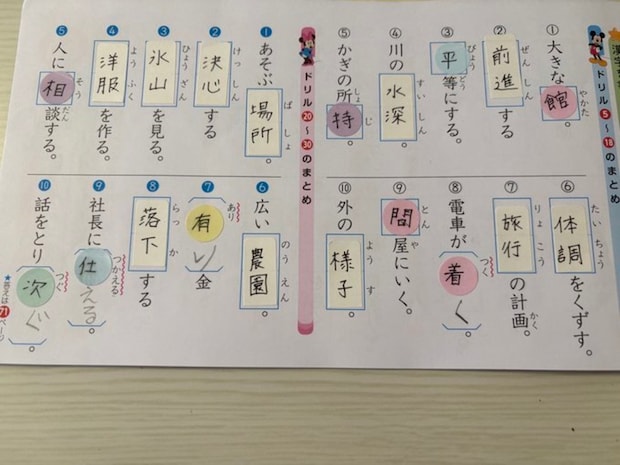 ドリル5〜18のまとめ
① 大きな館。
やかた
② 前進する
ぜんしん
③ 平等にする。
びょうどう
④ 川の水深。
すいしん
⑤ かぎの所持
しょじ
⑥ 体調をくずす。
たいちょう
⑦ 旅行の計画。
りょこう かく
⑧ 電車が着く。
つく
⑨ 問屋にいく。
とんや
⑩ 外の様子。
ようす
ドリル20〜30のまとめ
① あそぶ場所。
ばしょ
② 決心する
けっしん
③ 氷山を見る。
ひょうざん
④ 洋服を作る。
ようふく
⑤ 人に相談する。
そうだん
⑥ 広い農園。
のうえん
⑦ 有り金
あり
⑧ 落下する
らっか
⑨ 社長に仕える。
つかえる
⑩ 話をとり次ぐ。
つぐ
★答えは71ページ